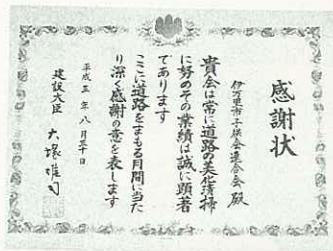 感謝状
伊万里市子供会連合会 殿
貴会は常に道路の美化清掃
に努めその業績は誠に顕著
であります
ここに道路をまもる月間に当た
り深く感謝の意を表します
平成三年八月三十日
建設大臣 大塚雄司